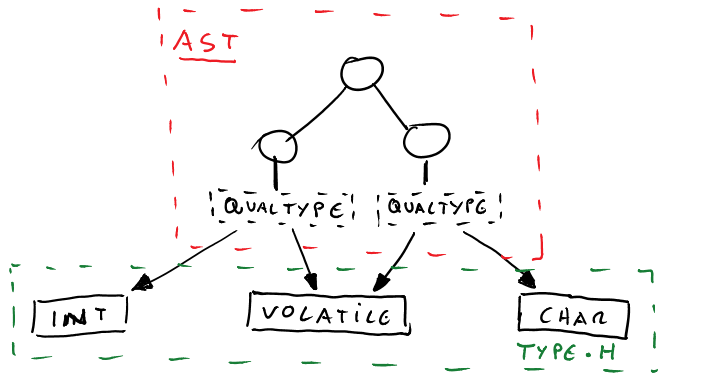 AST
QUALTYPE
QUALTYPE
INT
VOLATILE
CHAR
TYPE.H